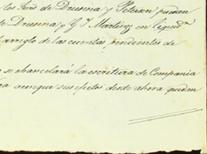 los Sres de Drusina y Petersen pueden
de Drusina y G. J. Martinez en liquidn
arreglo de las cuentas pendientes de
se chancelará la escritura de Compañia
aunque sus efectos desde ahora queden